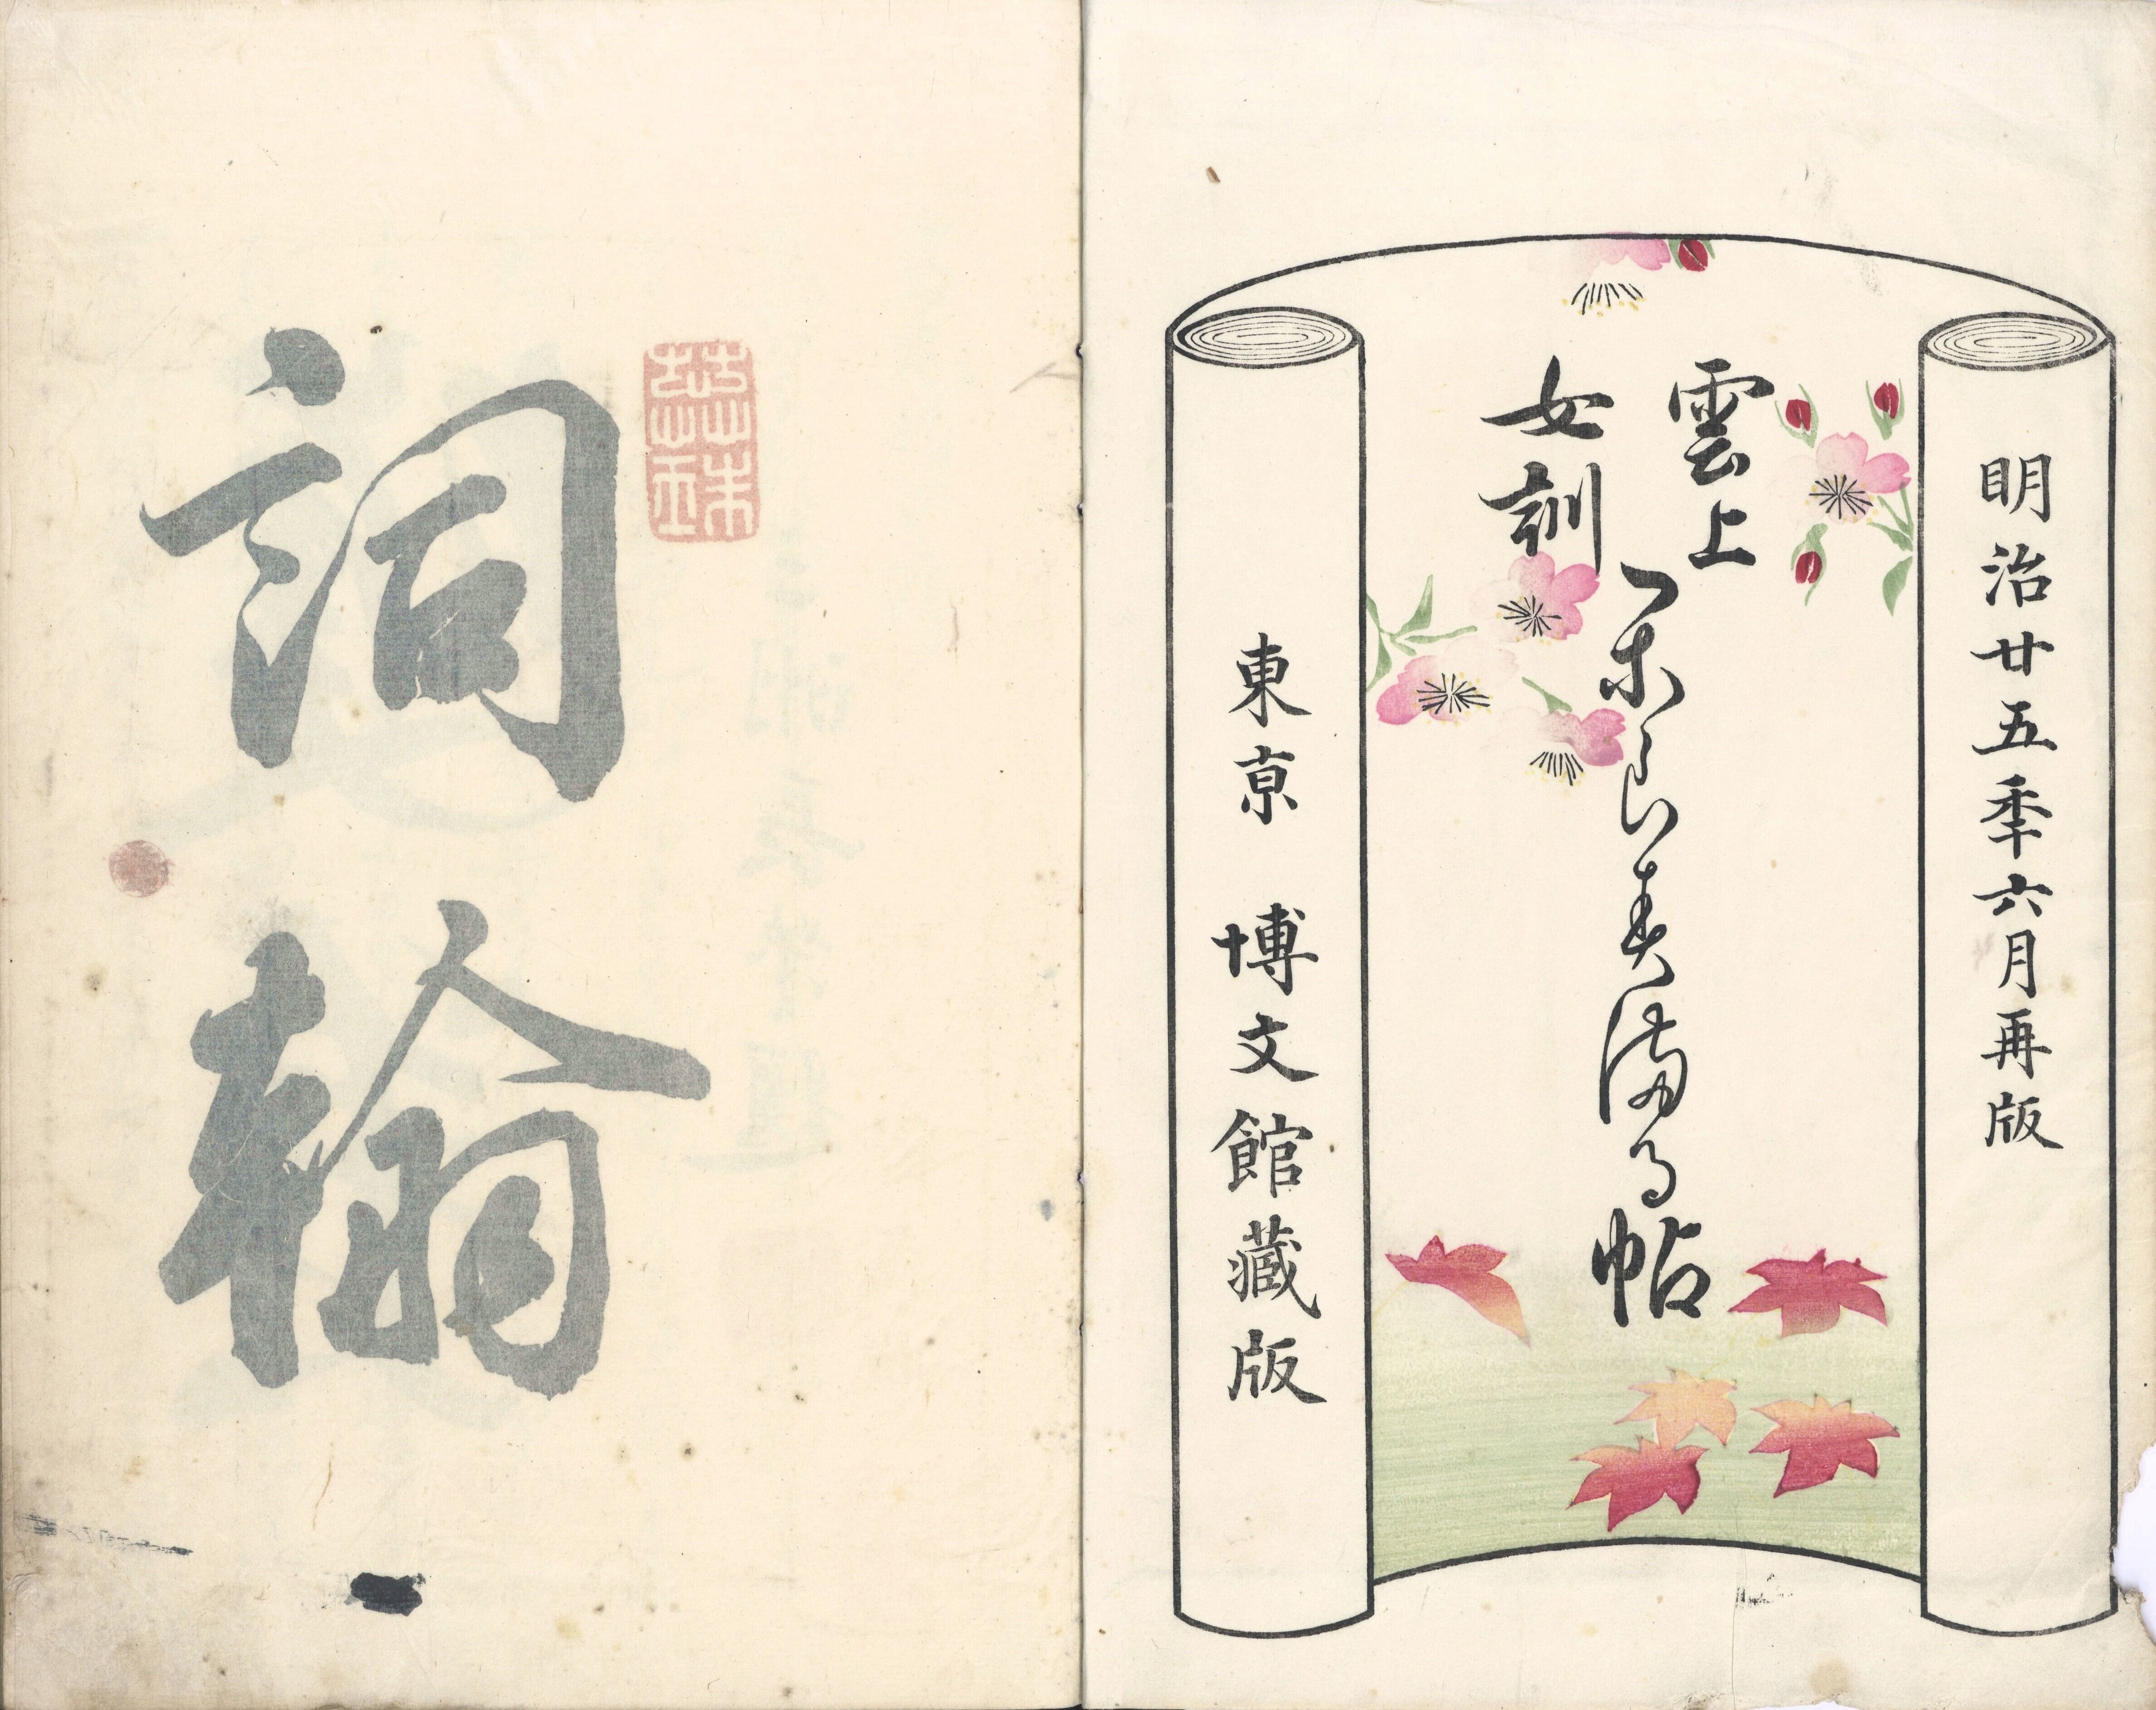 明治廿五季六月再版
雲上
女訓
帖
東京 博文館藏版
詞
翰